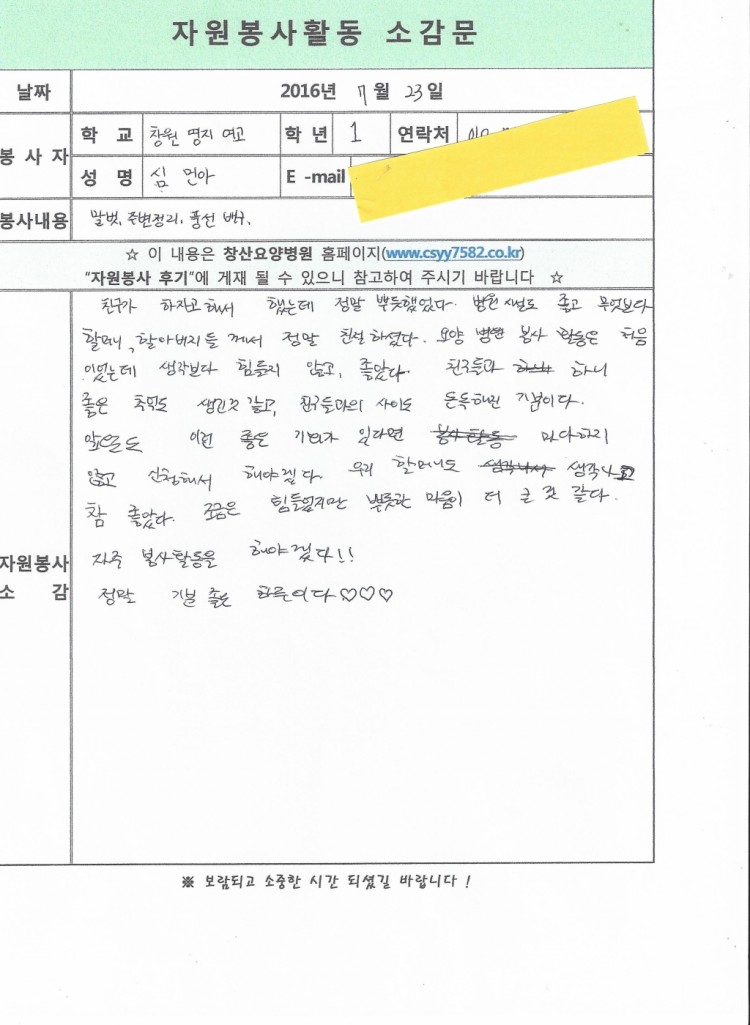 자원봉사활동 소감문
날짜 2016년 7월 23일
봉사자 학교 창원 명지 여고 학년 1 연락처
성명 심 민아 E -mail
봉사내용 말벗, 주변정리, 풍선 배구.
☆ 이 내용은 창산요양병원 홈페이지(www.csyy7582.co.kr)
"자원봉사 후기"에 게재 될 수 있으니 참고하여 주시기 바랍니다 ☆
자원봉사
소 감
친구가 하자고 해서 했는데 정말 뿌듯했었다. 병원 시설도 좋고 무엇보다
할머니, 할아버지들 께서 정말 친절하셨다. 요양 병원 봉사 활동은 처음
이었는데 생각보다 힘들지 않고, 좋았다. 친구들과 하니
좋은 추억도 생긴것 같고, 친구들과의 사이도 돈독해진 기분이다.
앞으로도 이런 좋은 기회가 있다면 봉사활동 마다하지
않고 신청해서 해야겠다. 우리 할머니도 생각나고
참 좋았다. 조금은 힘들었지만 뿌듯한 마음이 더 큰 것 같다.
자주 봉사활동을 해야겠다!!
정말 기분 좋은 하루이다♡♡♡
※ 보람되고 소중한 시간 되셨길 바랍니다 !